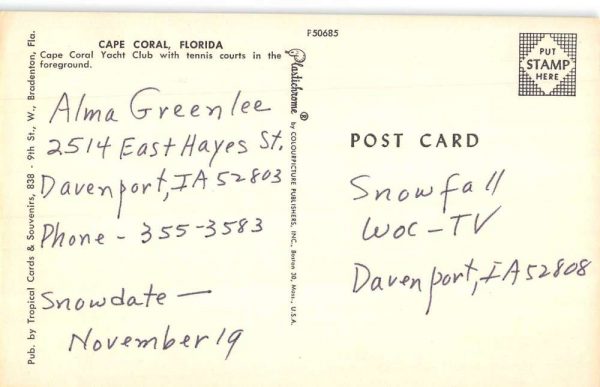 CAPE CORAL, FLORIDA
Cape Coral Yacht Club with tennis courts in the
foreground.
F50685
PUT
STAMP
HERE
Pub. by Tropical Cards & Souvenirs, 838 - 9th St., W., Bradenton, Fla.
Plastichrome ® by COLOURPICTURE PUBLISHERS, INC., Boston 30, Mass., U.S.A.
Alma Greenlee
2514 East Hayes St.
Davenport, IA 52803
Phone - 355-3583
Snowdate —
November 19
POST CARD
Snowfall
WOC-TV
Davenport, IA 52808